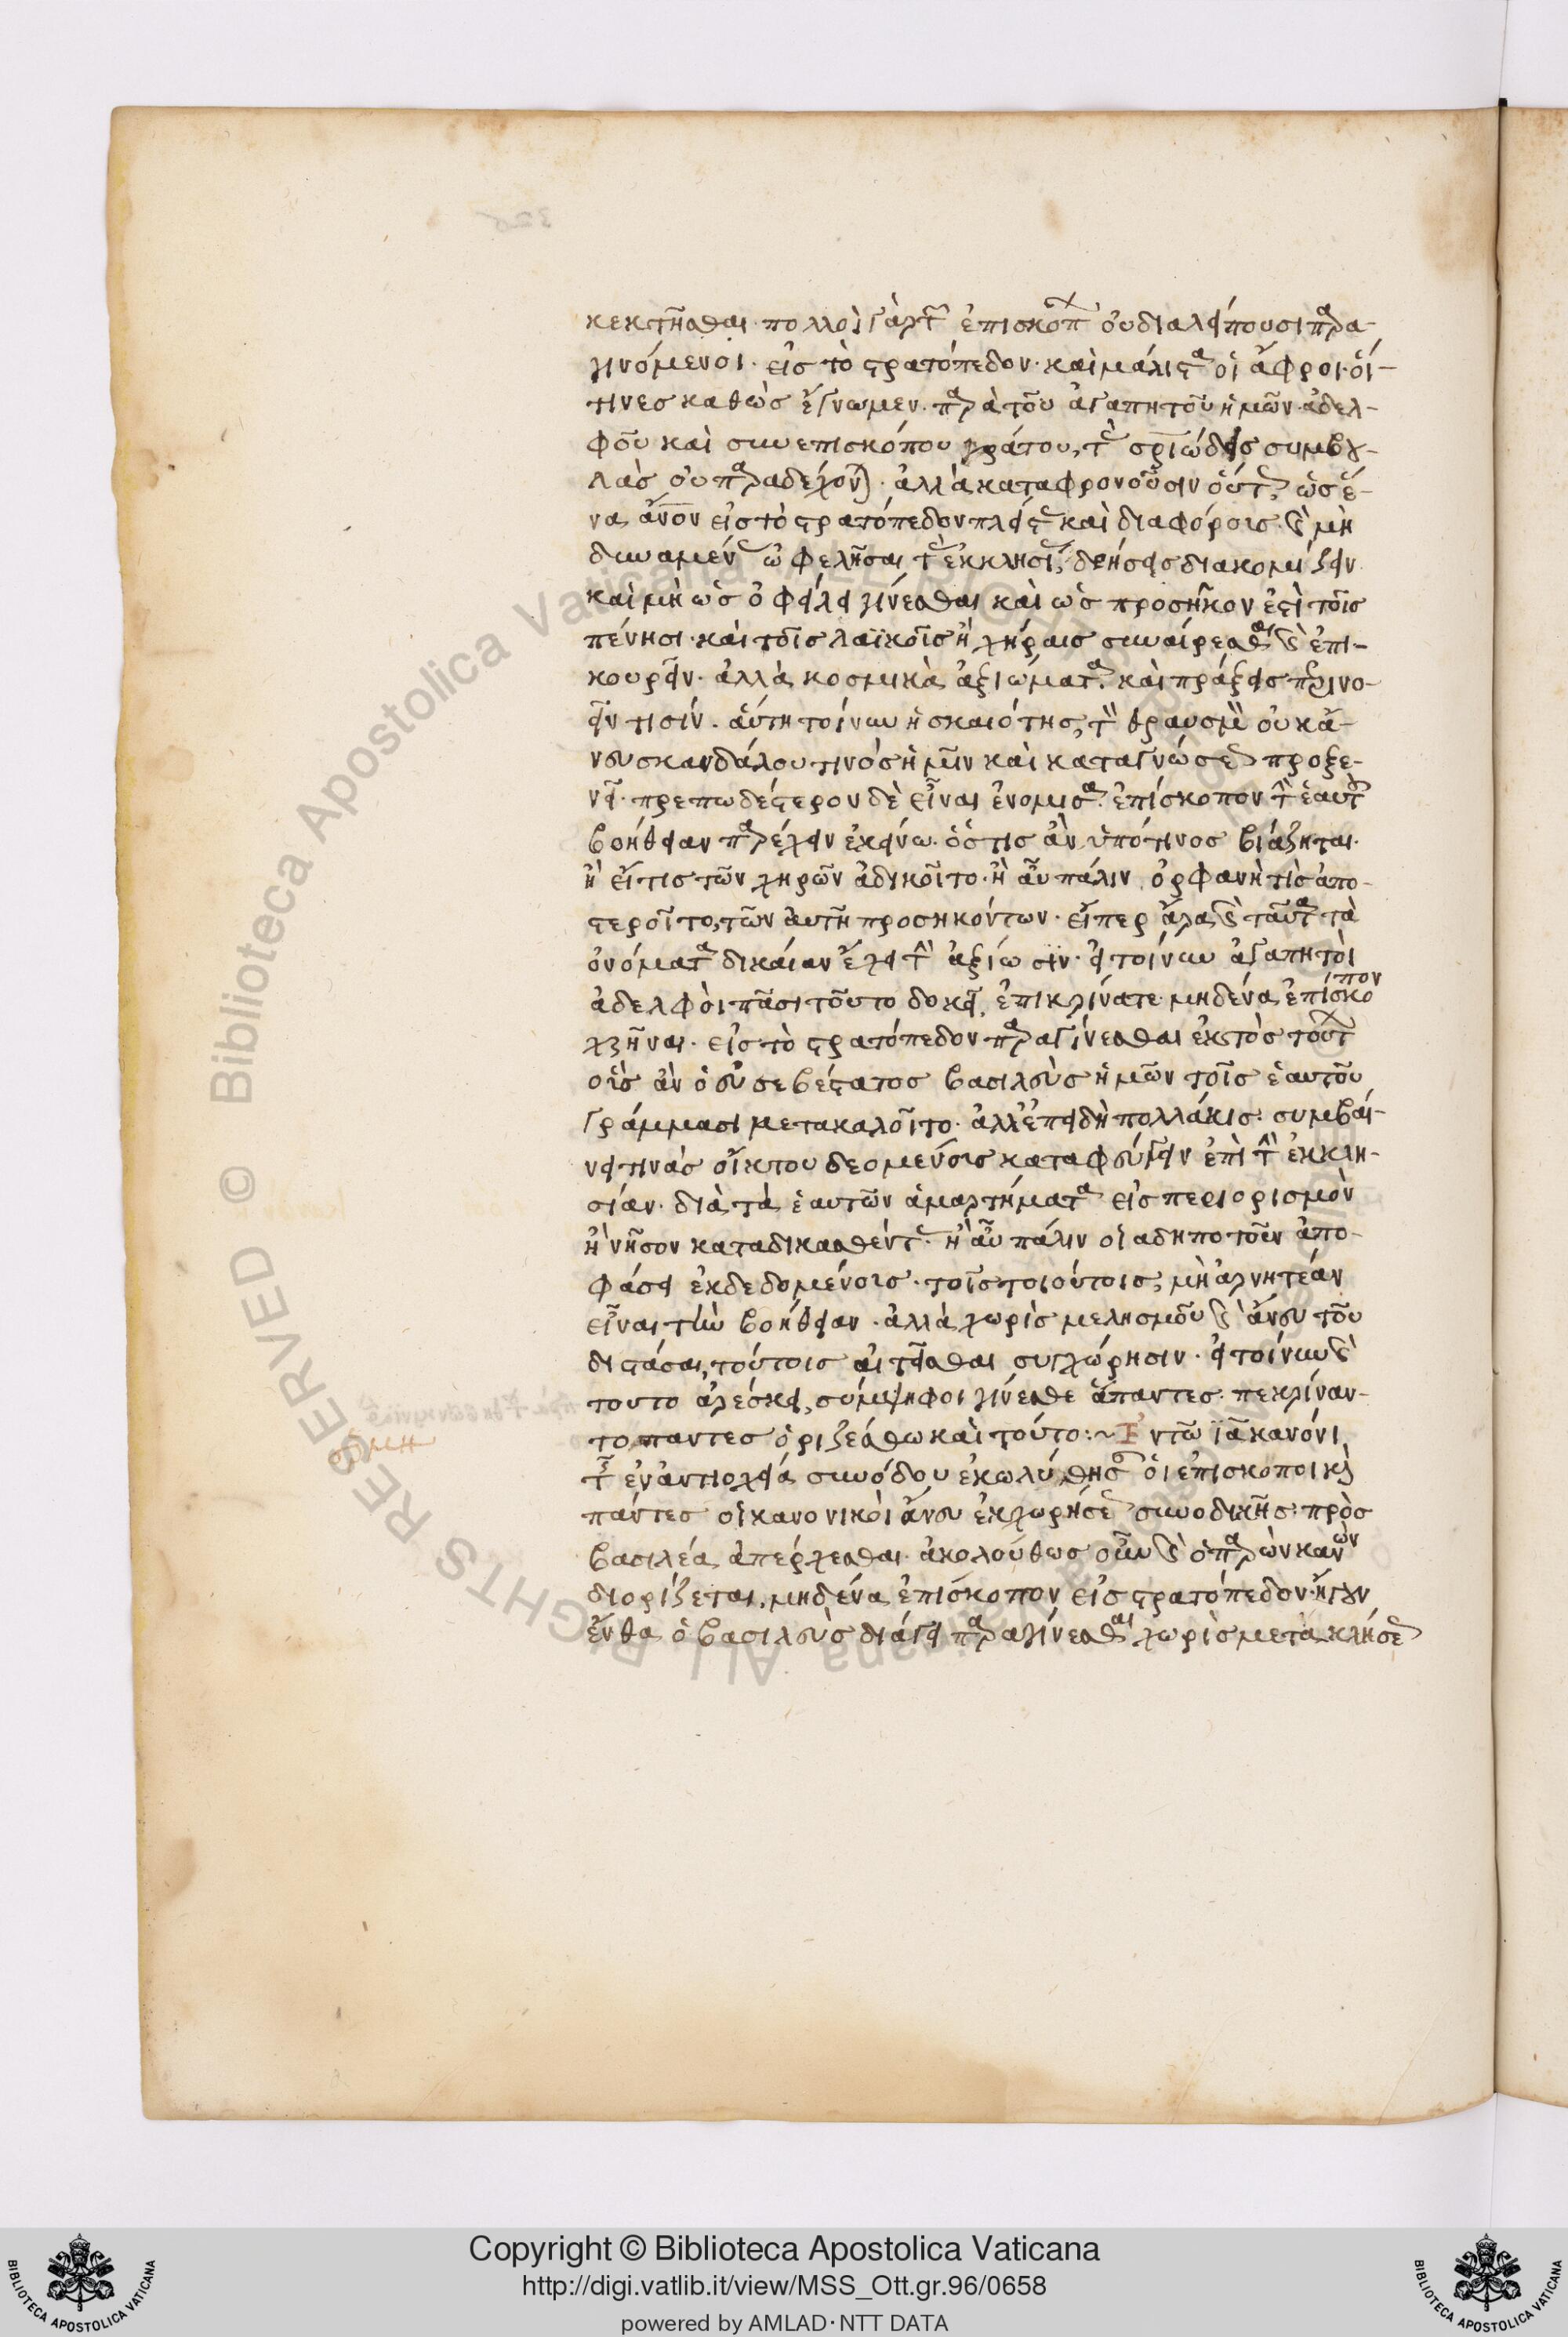 κεκτῆσθαι· πολλοὶ γὰρ τῶν ἐπισκόπων οὐ διαλείπουσι παρα-
γινόμενοι· εἰς τὸ στρατόπεδον· καὶ μάλιστα οἱ ἄφροι· οἵ-
τινες καθὼς ἔγνωμεν· παρὰ τοῦ ἀγαπητοῦ ἡμῶν ἀδελ-
φοῦ καὶ συνεπισκόπου γράτου, τὰς σωτηριώδεις συμβου-
λὰς οὐ παραδέχονται· ἀλλὰ καταφρονοῦσιν οὕτως, ὡς ἕ-
να ἄνον εἰς τὸ στρατόπεδον πλείστας καὶ διαφόρους καὶ μὴ
δυναμένας ὠφελῆσαι τὰς ἐκκλησίας, δεήσεις διακομίζειν
καὶ μὴ ὡς ὀφείλει γίνεσθαι καὶ ὡς προσῆκον ἐστὶ τοῖς
πένησι· καὶ τοῖς λαϊκοῖς ἢ χήραις συναίρεσθαι καὶ ἐπι-
κουρεῖν· ἀλλὰ κοσμικὰ ἀξιώματα· καὶ πράξεις περινο-
εῖν τισίν· αὕτη τοίνυν ἡ σκαιότης, τὴν θραῦσιν οὐκ ἄ-
νευ σκανδάλου τινὸς ἡμῖν καὶ καταγνώσεως προξε-
νεῖ· πρεπωδέστερον δὲ εἶναι ἐνόμισα· ἐπίσκοπον τὴν ἑαυτῶν
βοήθειαν παρέχειν ἐκείνω· ὅστις ἂν ὑπό τινος βιάζηται·
ἢ εἴ τις τῶν χηρῶν ἀδικοῖτο· ἢ αὖ πάλιν ὀρφανή τις ἀπο-
στεροῖτο, τῶν αὐτῆ προσηκόντων· εἴπερ ἄρα καὶ ταῦτα τὰ
ὀνόματα δικαίαν ἔχει τὴν ἀξίωσιν· εἰ τοίνυν ἀγαπητοὶ
ἀδελφοὶ πᾶσι τοῦτο δοκεῖ, ἐπικρίνατε μηδένα ἐπίσκοπον
χρῆναι· εἰς τὸ στρατόπεδον παραγίνεσθαι ἐκτὸς τούτων
οὓς ἂν ὁ εὐσεβέστατος βασιλεὺς ἡμῶν τοῖς ἑαυτοῦ
γράμμασι μετακαλοῖτο· ἀλλ' ἐπειδὴ πολλάκις συμβαί-
νει τινὰς οἴκτου δεομένους καταφυγεῖν ἐπὶ τὴν ἐκκλη-
σίαν· διὰ τὰ ἑαυτῶν ἁμαρτήματα εἰς περιορισμὸν
ἢ νῆσον καταδικασθέντας· ἢ αὖ πάλιν οἱαδηποτοῦν ἀπο-
φάσει ἐκδεδομένους· τοῖς τοιούτοις, μὴ ἀρνητέαν
εἶναι τὴν βοήθειαν· ἀλλὰ χωρὶς μελησμοῦ καὶ ἄνευ τοῦ
διστάσαι, τούτοις αἰτεῖσθαι συγχώρησιν· εἰ τοίνυν καὶ
τοῦτο ἀρέσκει, σύμψηφοι γίνεσθε ἅπαντες· πεκρίναν-
το παντες ὁριζέσθω καὶ τοῦτο :~ Ἐν τῶ ια κανόνι
τῆς ἐν ἀντιοχεία συνόδου ἐκωλύθησαν οἱ ἐπίσκοποι καὶ
πάντες οἱ κανονικοὶ ἄνευ ἐκχωρήσεως συνοδικῆς πρὸς
βασιλέα ἀπέρχεσθαι· ἀκολούθως οὖν καὶ ὁ παρὼν κανὼν
διορίζεται, μηδένα ἐπίσκοπον εἰς στρατόπεδον· ἤγουν
ἔνθα ὁ βασιλεὺς διάγει παραγίνεσθαι χωρὶς μετακλήσεως
Copyright © Biblioteca Apostolica Vaticana
http://digi.vatlib.it/view/MSS_Ott.gr.96/0658
powered by AMLAD·NTT DATA